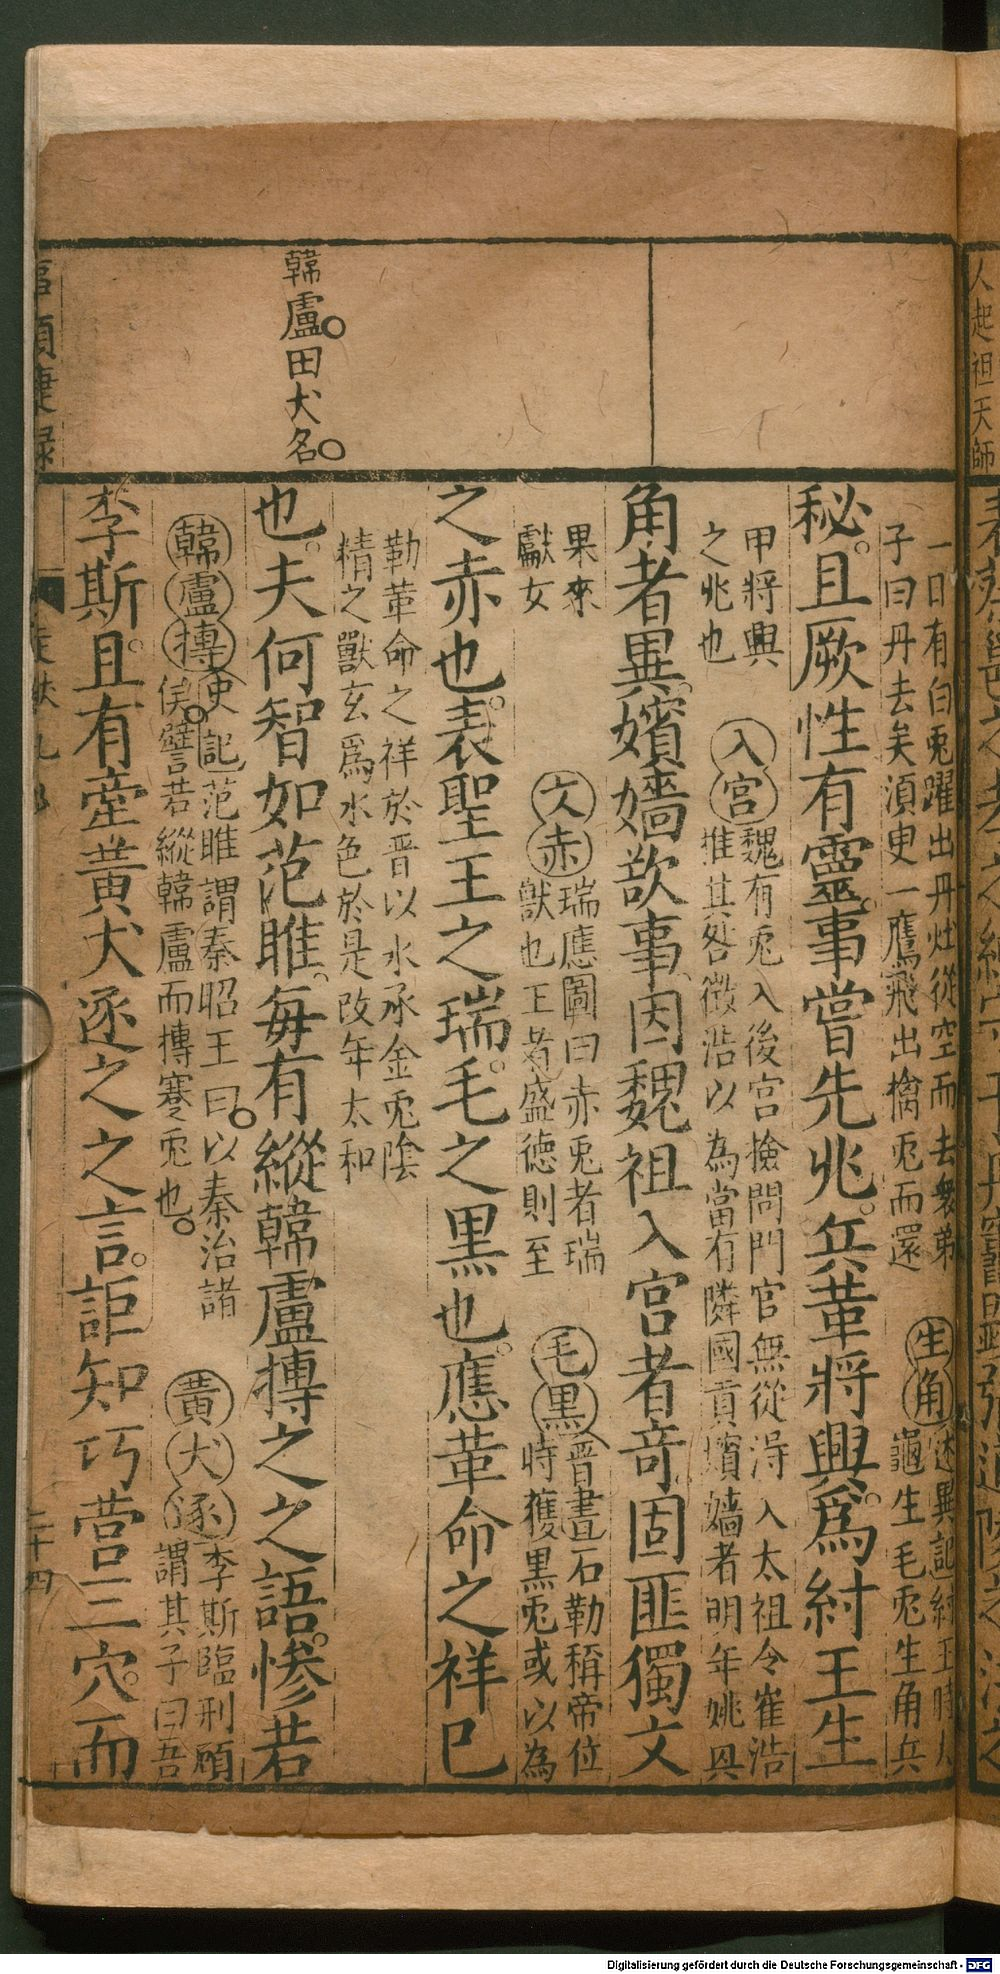 韓盧。田犬名。
一日有白兎躍出丹灶從空而去衆弟
子曰丹去矣須臾一鷹飛出擒兎而還
生角
述異記紂王時大
龜生毛兎生角兵
秘。且厥性有靈。事嘗先兆。兵革將興。爲紂王生
甲將興
之兆也
入宮
魏有兎入後宮撿問門官無從淂入太祖令崔浩
推其咎徵浩以為當有隣國貢嬪嬙者明年姚興
角者異。嬪嬙歆事。因魏祖入宮者竒。固匪獨文
果來
獻女
文赤
瑞應圖曰赤兎者瑞
獸也王者盛德則至
毛黒
晋書石勒稱帝位
時獲黒兎或以為
之赤也。表聖王之瑞。毛之黒也。應革命之祥已
勒革命之祥於晋以水承金兎陰
精之獸玄爲水色於是改年太和
也。夫何智如范雎。每有縱韓盧摶之之語。慘若
韓盧摶
史記范睢謂秦昭王曰。以秦治諸
侯。譬若縱韓盧而摶蹇兎也。
黄犬逐
李斯臨刑顧
謂其子曰吾
李斯。且有牽黄犬逐之之言。詎知巧营三穴。而
二十四
人起祖天師
Digitalisierung gefördert durch die Deutsche Forschungsgemeinschaft - DFG